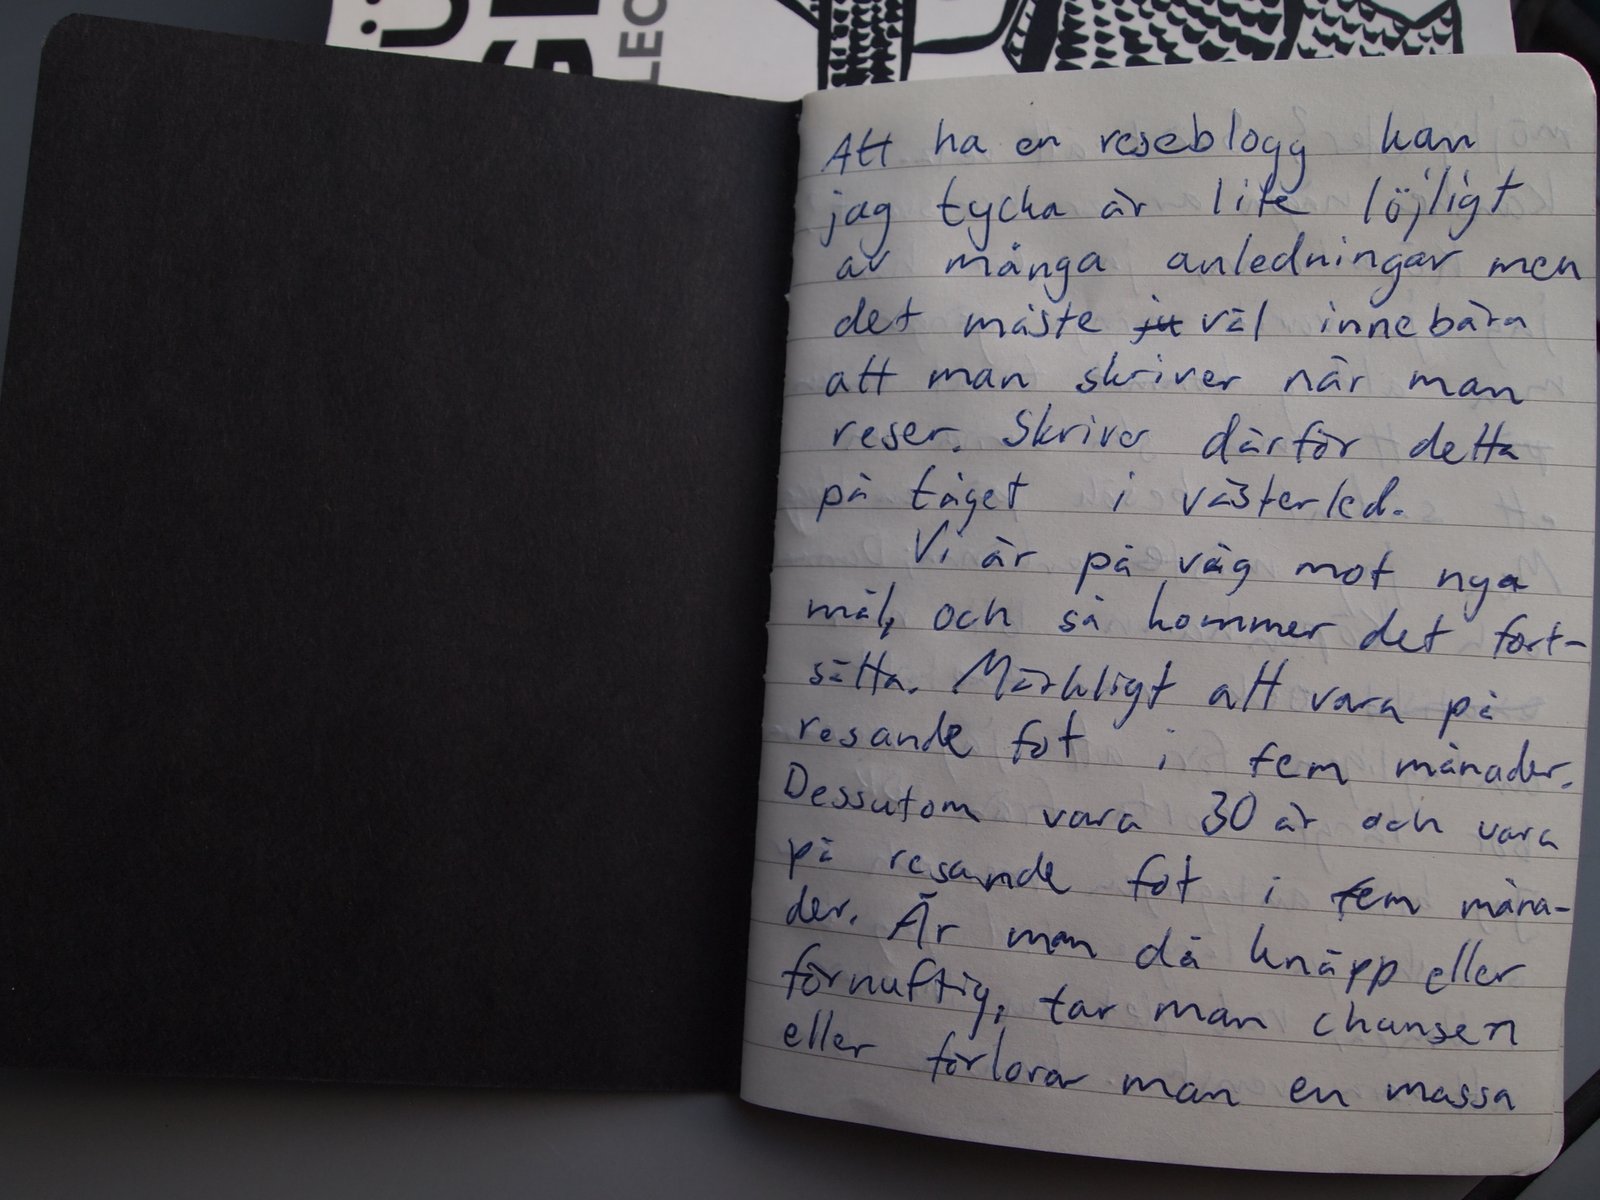 Ü
ST
LEC
Att ha en reseblogg kan
jag tycka är lite löjligt
av många anledningar men
det måste ju väl innebära
att man skriver när man
reser. Skriver därför detta
på tåget i västerled.
Vi är på väg mot nya
mål, och så kommer det fort-
sätta. Märkligt att vara på
resande fot i fem månader.
Dessutom vara 30 år och vara
på resande fot i fem måna-
der. Är man då knäpp eller
förnuftig, tar man chansen
eller förlorar man en massa